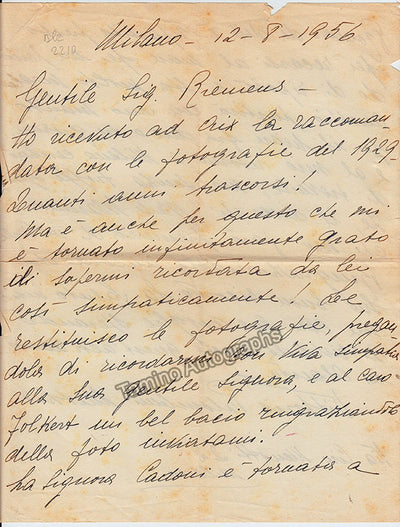 Blc
2210
Milano - 12-8-1956
Gentile Sig. Riemens -
Ho ricevuto ad Aix la raccoman-
data con le fotografie del 1929.
Quanti anni trascorsi!
Ma è anche per questo che mi
è tornato infinitamente grato
di sapermi ricordata da lei
così simpaticamente. Le
restituisco le fotografie, pregan
dola di ricordarmi con viva simpatia
alla sua gentile Signora, e al caro
Folkert un bel bacio ringraziandolo
della foto inviatami.
La signora Cadoni è tornata a
Tamino Autographs